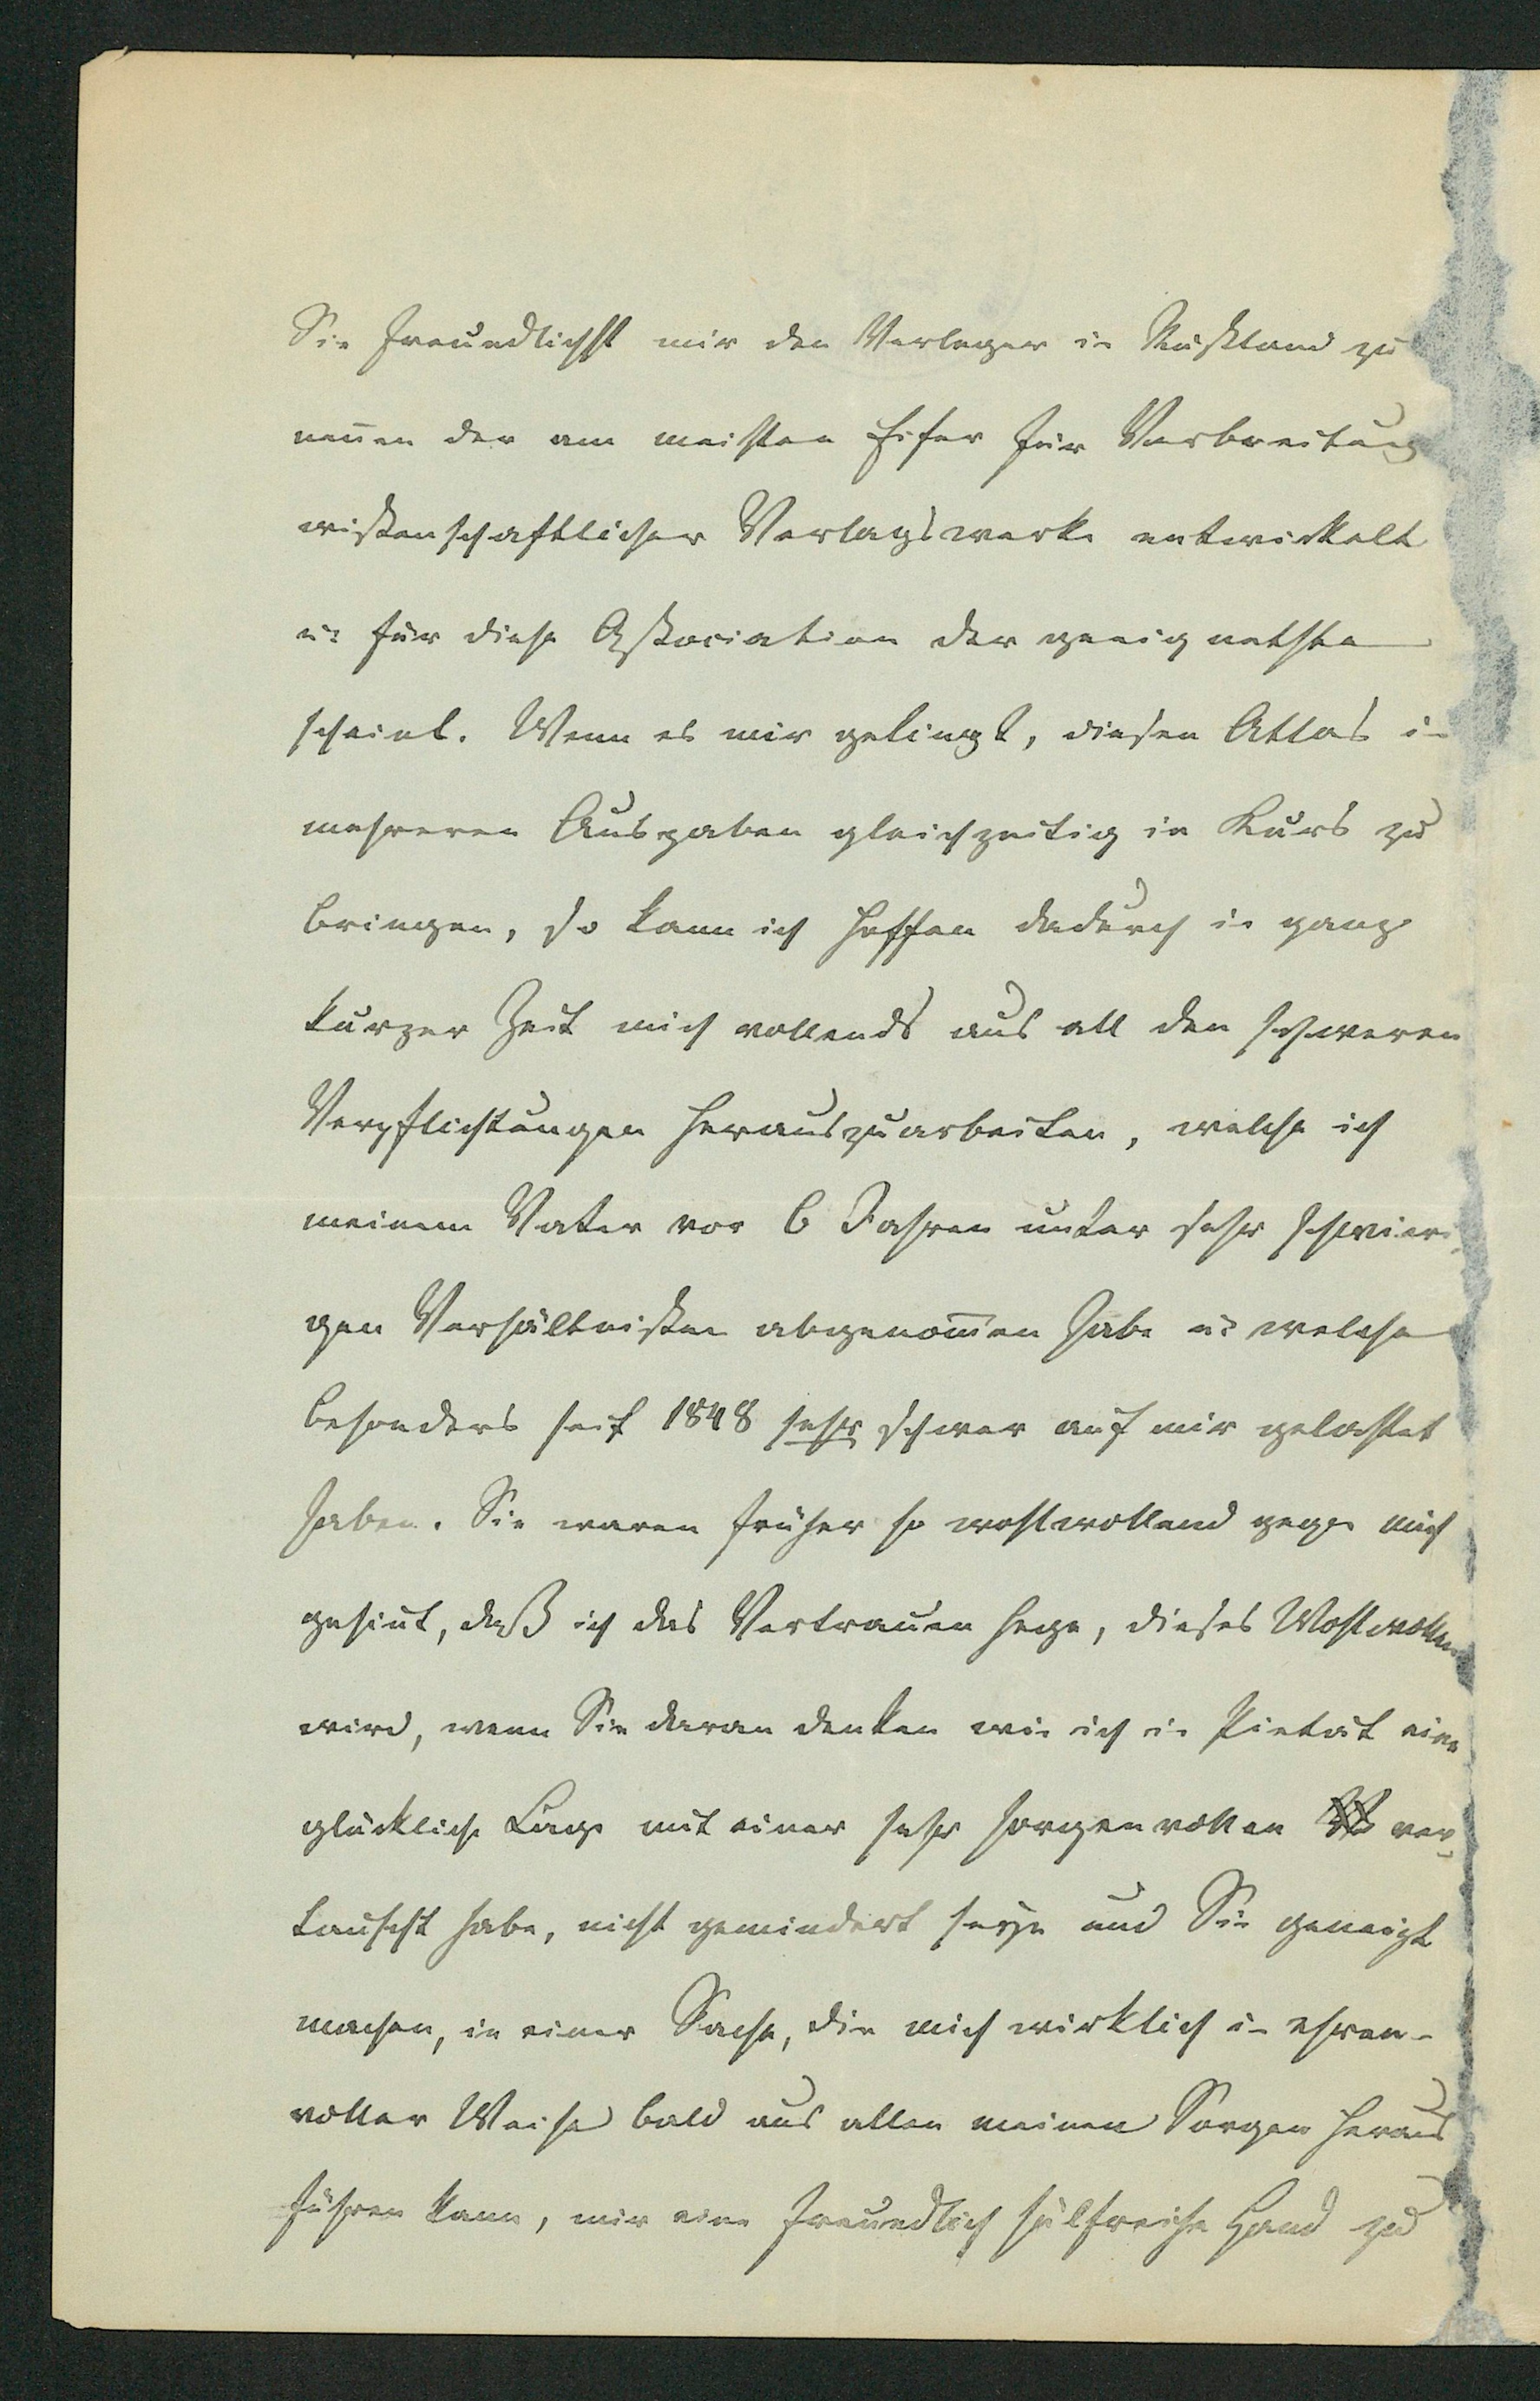 Sie freundlichst mir den Verleger in Rußland zu
nennen der am meisten Eifer für Verbreitung
wissenschaftlicher Verlagswerke entwickelt
u. für diese Association der geeignetste
scheint. Wenn es mir gelingt, diesen Atlas in
mehreren Ausgaben gleichzeitig in Kurs zu
bringen, so kann ich hoffen dadurch in ganz
kurzer Zeit mich vollends aus all den schweren
Verpflichtungen herauszuarbeiten, welche ich
meinem Vater vor 6 Jahren unter sehr schwieri-
gen Verhältnissen abgenom̅en habe u. welche
besonders seit 1848 sehr schwer auf mir gelastet
haben. Sie waren früher so wohlwollend gegen mich
gesin̅t, daß ich das Vertrauen hege, dieses Wohlwollen
wird, wenn Sie daran denken wie ich in Pietät eine
glückliche Lage mit einer sehr sorgenvollen ver-
tauscht habe, nicht gemindert seyn und Sie geneigt
machen, in einer Sache, die mich wirklich in ehren-
voller Weise bald aus allen meinen Sorgen heraus
führen kann, mir eine freundlich hülfreiche Hand zu